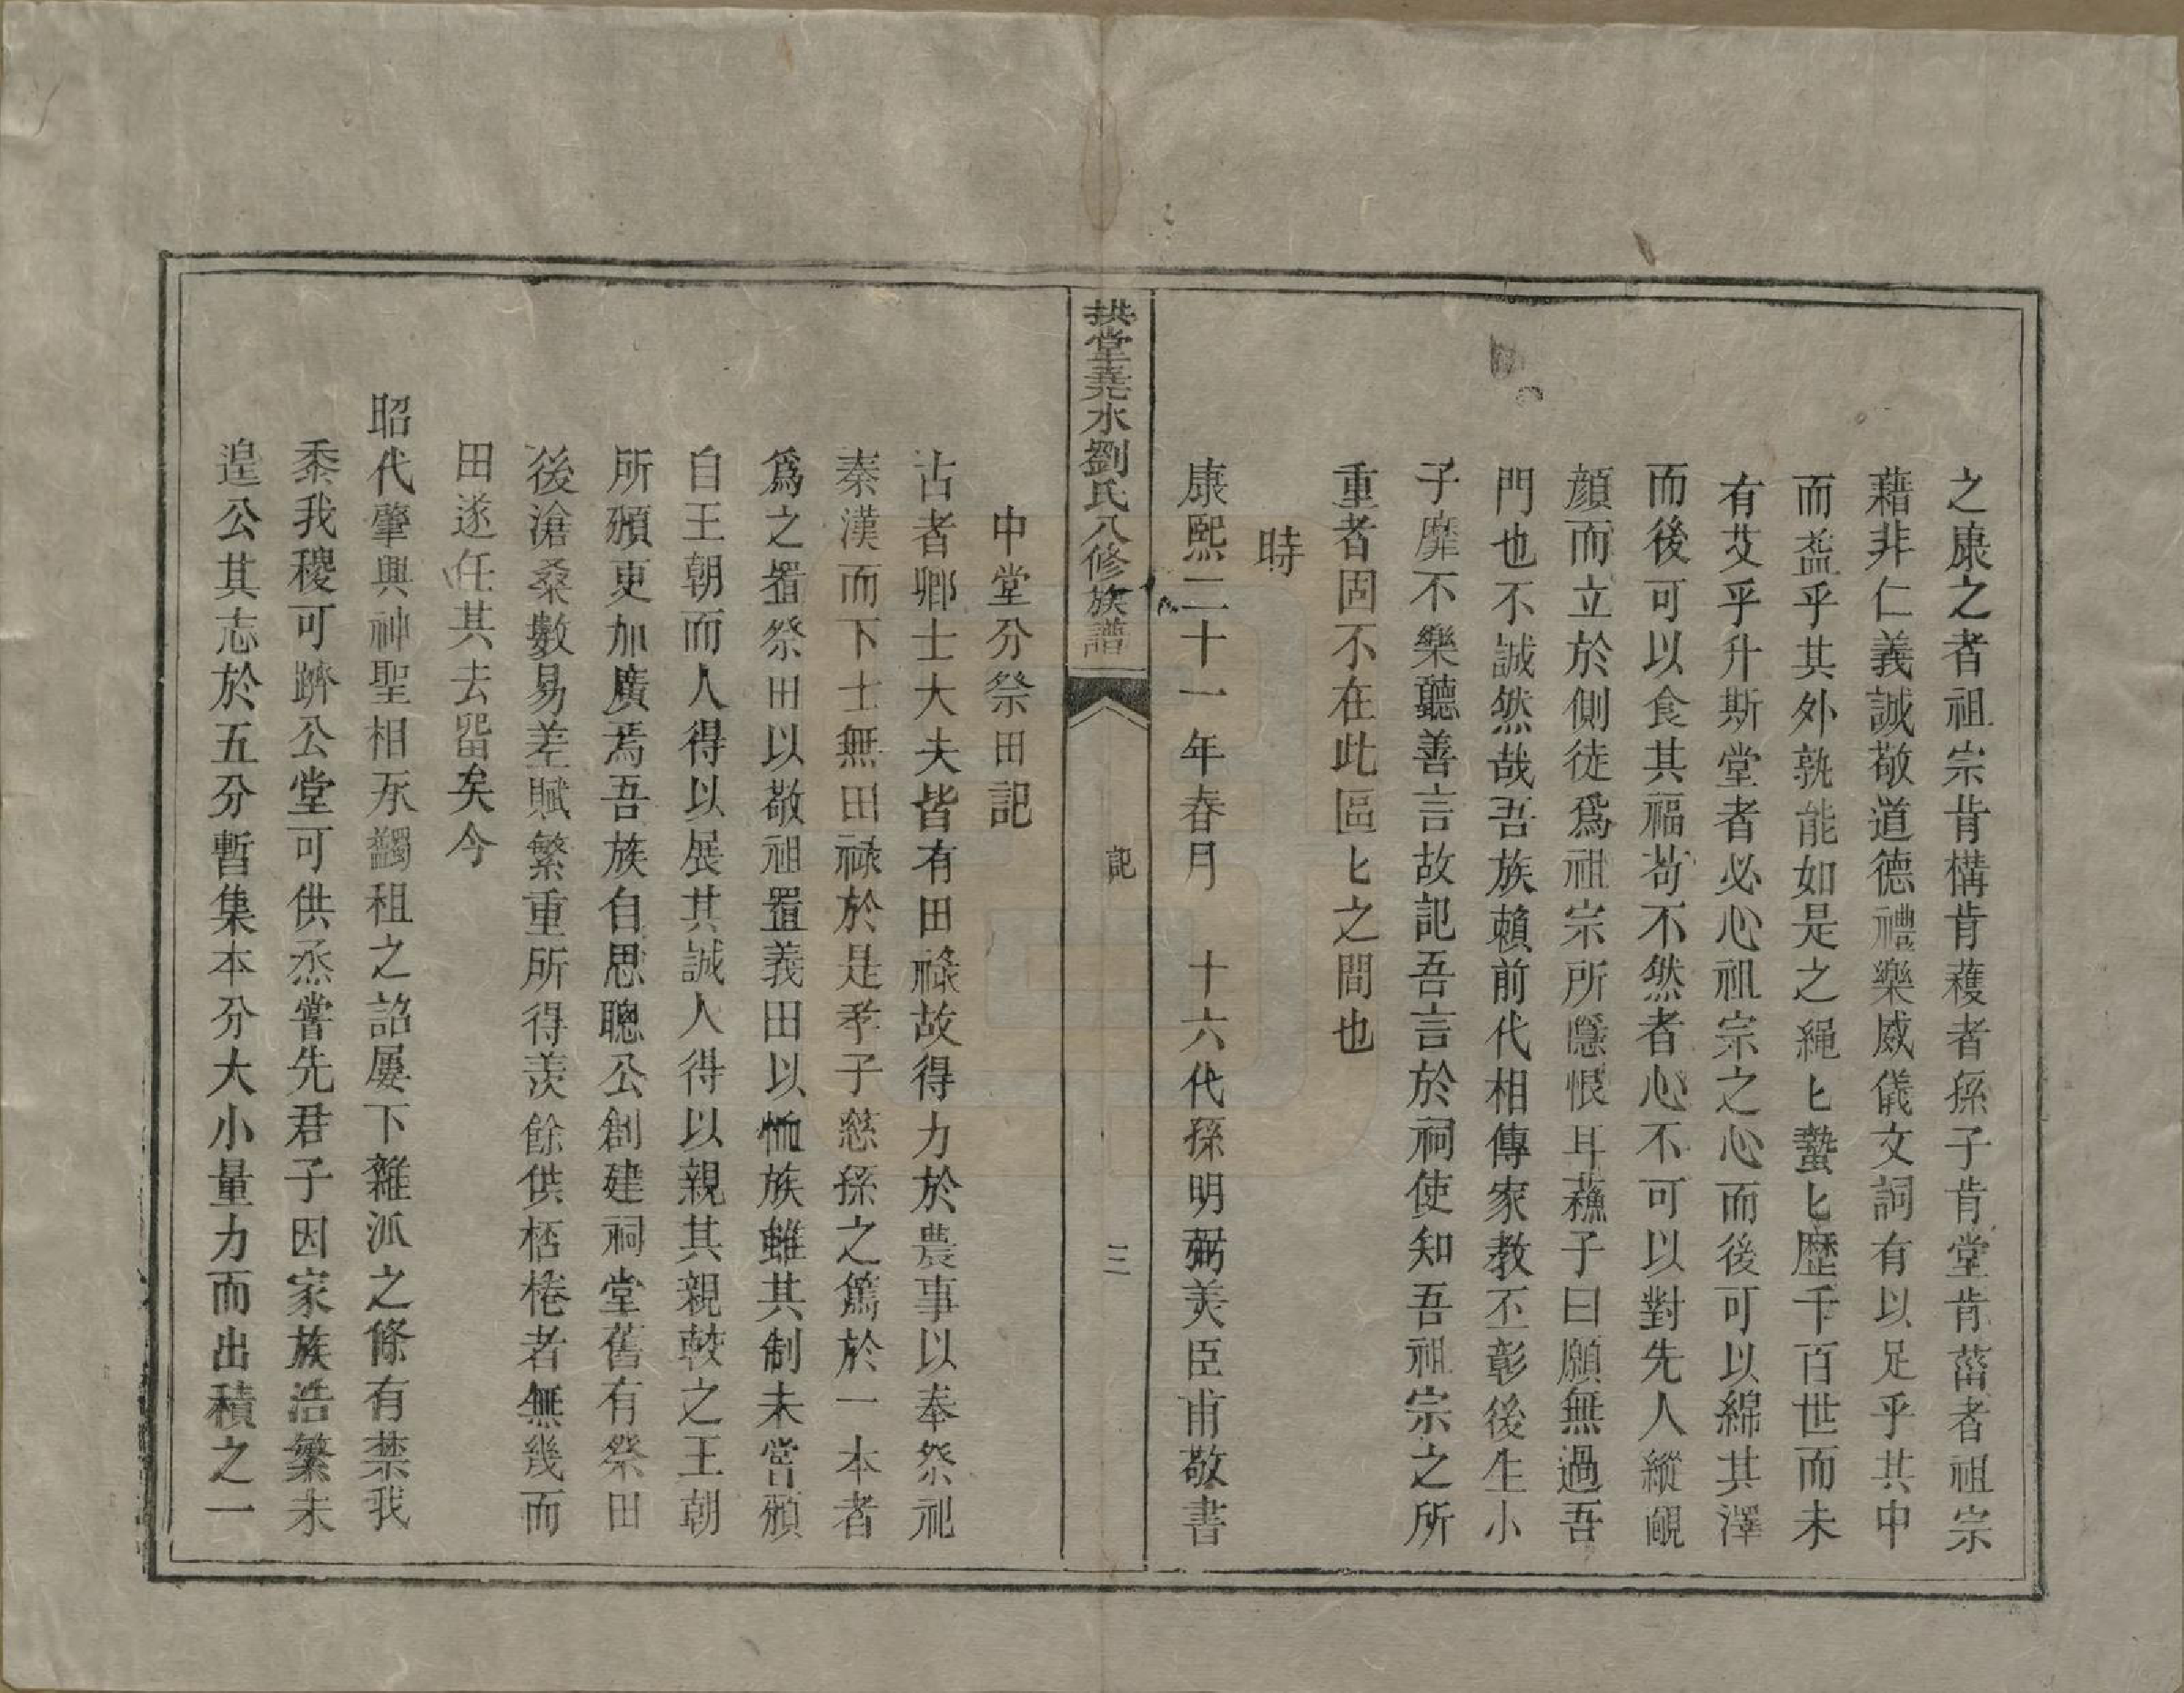 之康之者祖宗肯構肯穫者孫子肯堂肯菑者祖宗
藉非仁義誠敬道德禮樂威儀文詞有以足乎其中
而盎乎其外孰能如是之繩匕蟄匕歷千百世而未
有艾乎升斯堂者必心祖宗之心而後可以綿其澤
而後可以食其福茍不然者心不可以對先人縱靦
顏而立於側徒爲祖宗所隱恨耳蘓子曰願無過吾
門也不誠然哉吾族賴前代相傳家教丕彰後生小
子靡不樂聽善言故記吾言於祠使知吾祖宗之所
重者固不在此區匕之間也
時
康熙二十一年春月　十六代孫明弼美臣甫敬書
拱堂堯水劉氏八修族譜
記
三
中堂分祭田記
古者卿士大夫皆有田祿故得力於農事以奉祭祀
秦漢而下士無田祿於是孝子慈孫之篤於一本者
爲之置祭田以敬祖置義田以恤族雖其制未嘗頒
自王朝而人得以展其誠人得以親其親較之王朝
所頒更加廣焉吾族自思聰公創建祠堂舊有祭田
後滄桑數易差賦繁重所得羨餘供桮棬者無幾而
田遂任其去畱矣今
昭代肇興神聖相承蠲租之詔屢下雜派之條有禁我
黍我稷可躋公堂可供烝嘗先君子因家族浩繁未
遑公其志於五分暫集本分大小量力而出積之一